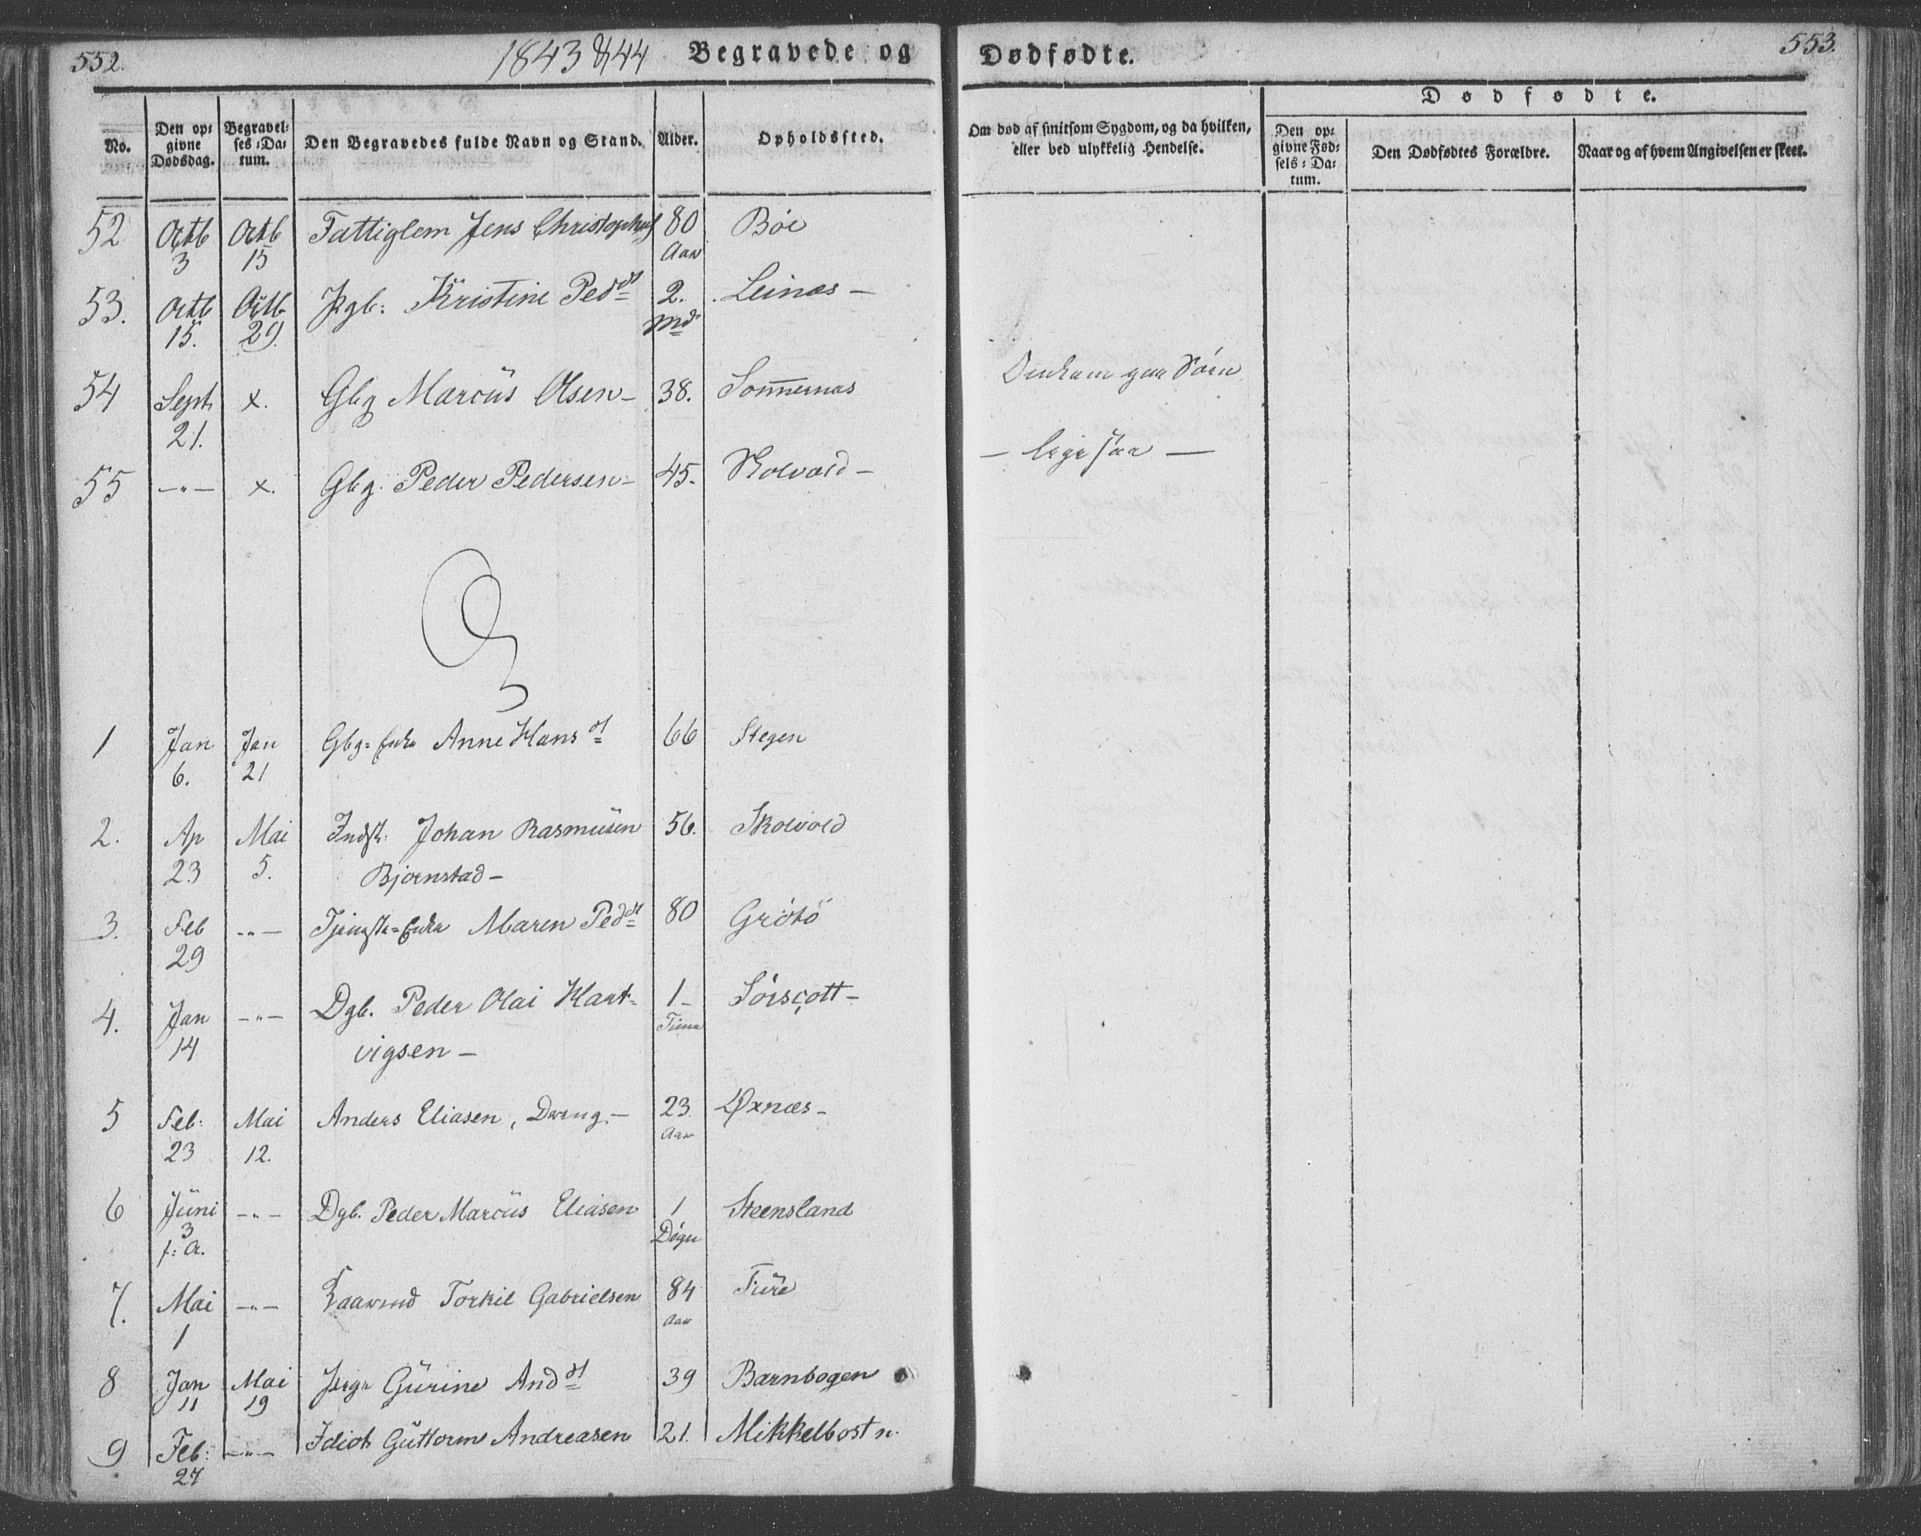 552.
1843 & 44 Begravede og
No.
Den opgivne Dødsdag.
Begravelses-Datum.
Den Begravedes fulde Navn og Stand.
Alder.
Opholdssted.
52 Octb 3 Octb 15 Fattiglem Jens Christophs 80 Aar Bøe
53. Octb 15. Octb 29. Pgb: Kristine Pedd 2. Md Leines –
54 Sept 21. x. Gbg Marcus Olsen – 38. Sommernæs
55 – " – x. Gbg. Peder Pedersen – 45. Skolvold –
1 Jan 6. Jan 21 Gbg= Enke Anne Hansd 66 Stegen
2. Ap 23 Mai 5. Indst: Johan Rasmusen 56. Skolvold
Bjornstad –
3. Feb 29 – " – Tjenest= Enke Maren Pedd 80 Grøtø
4. Jan 14 – " – Dgb. Peder Olai Hart- 1 – Time Sørscott –
vigsen –
5 Feb: 23 Mai 12. Anders Eliasen, Dreng – 23 Aar Øxnæs –
6 Juni 3 f: A. – " – Dgb. Peder Marcus Eliasen 1 Døgn Steensland
7. Mai 1 – " – Torkil Gabrielsen 84 Aar Fure
8 Jan 11 Mai 19 Pige Gurine Andd 39 Barnbogen
9 Feb: 27 – " – Idiot Guttorm Andreasen 21. Mikkelbostn.
553.
Dødfødte.
Om død af smitsom Sygdom, og da hvilken, eller ved ulykkelig Hendelse.
Dødfødte.
Den opgivne Fødsels-Datum.
Den Dødfødtes Forældre.
Naar og af hvem Angivelsen er skeet.
Omkom paa Søen
– ligesaa –